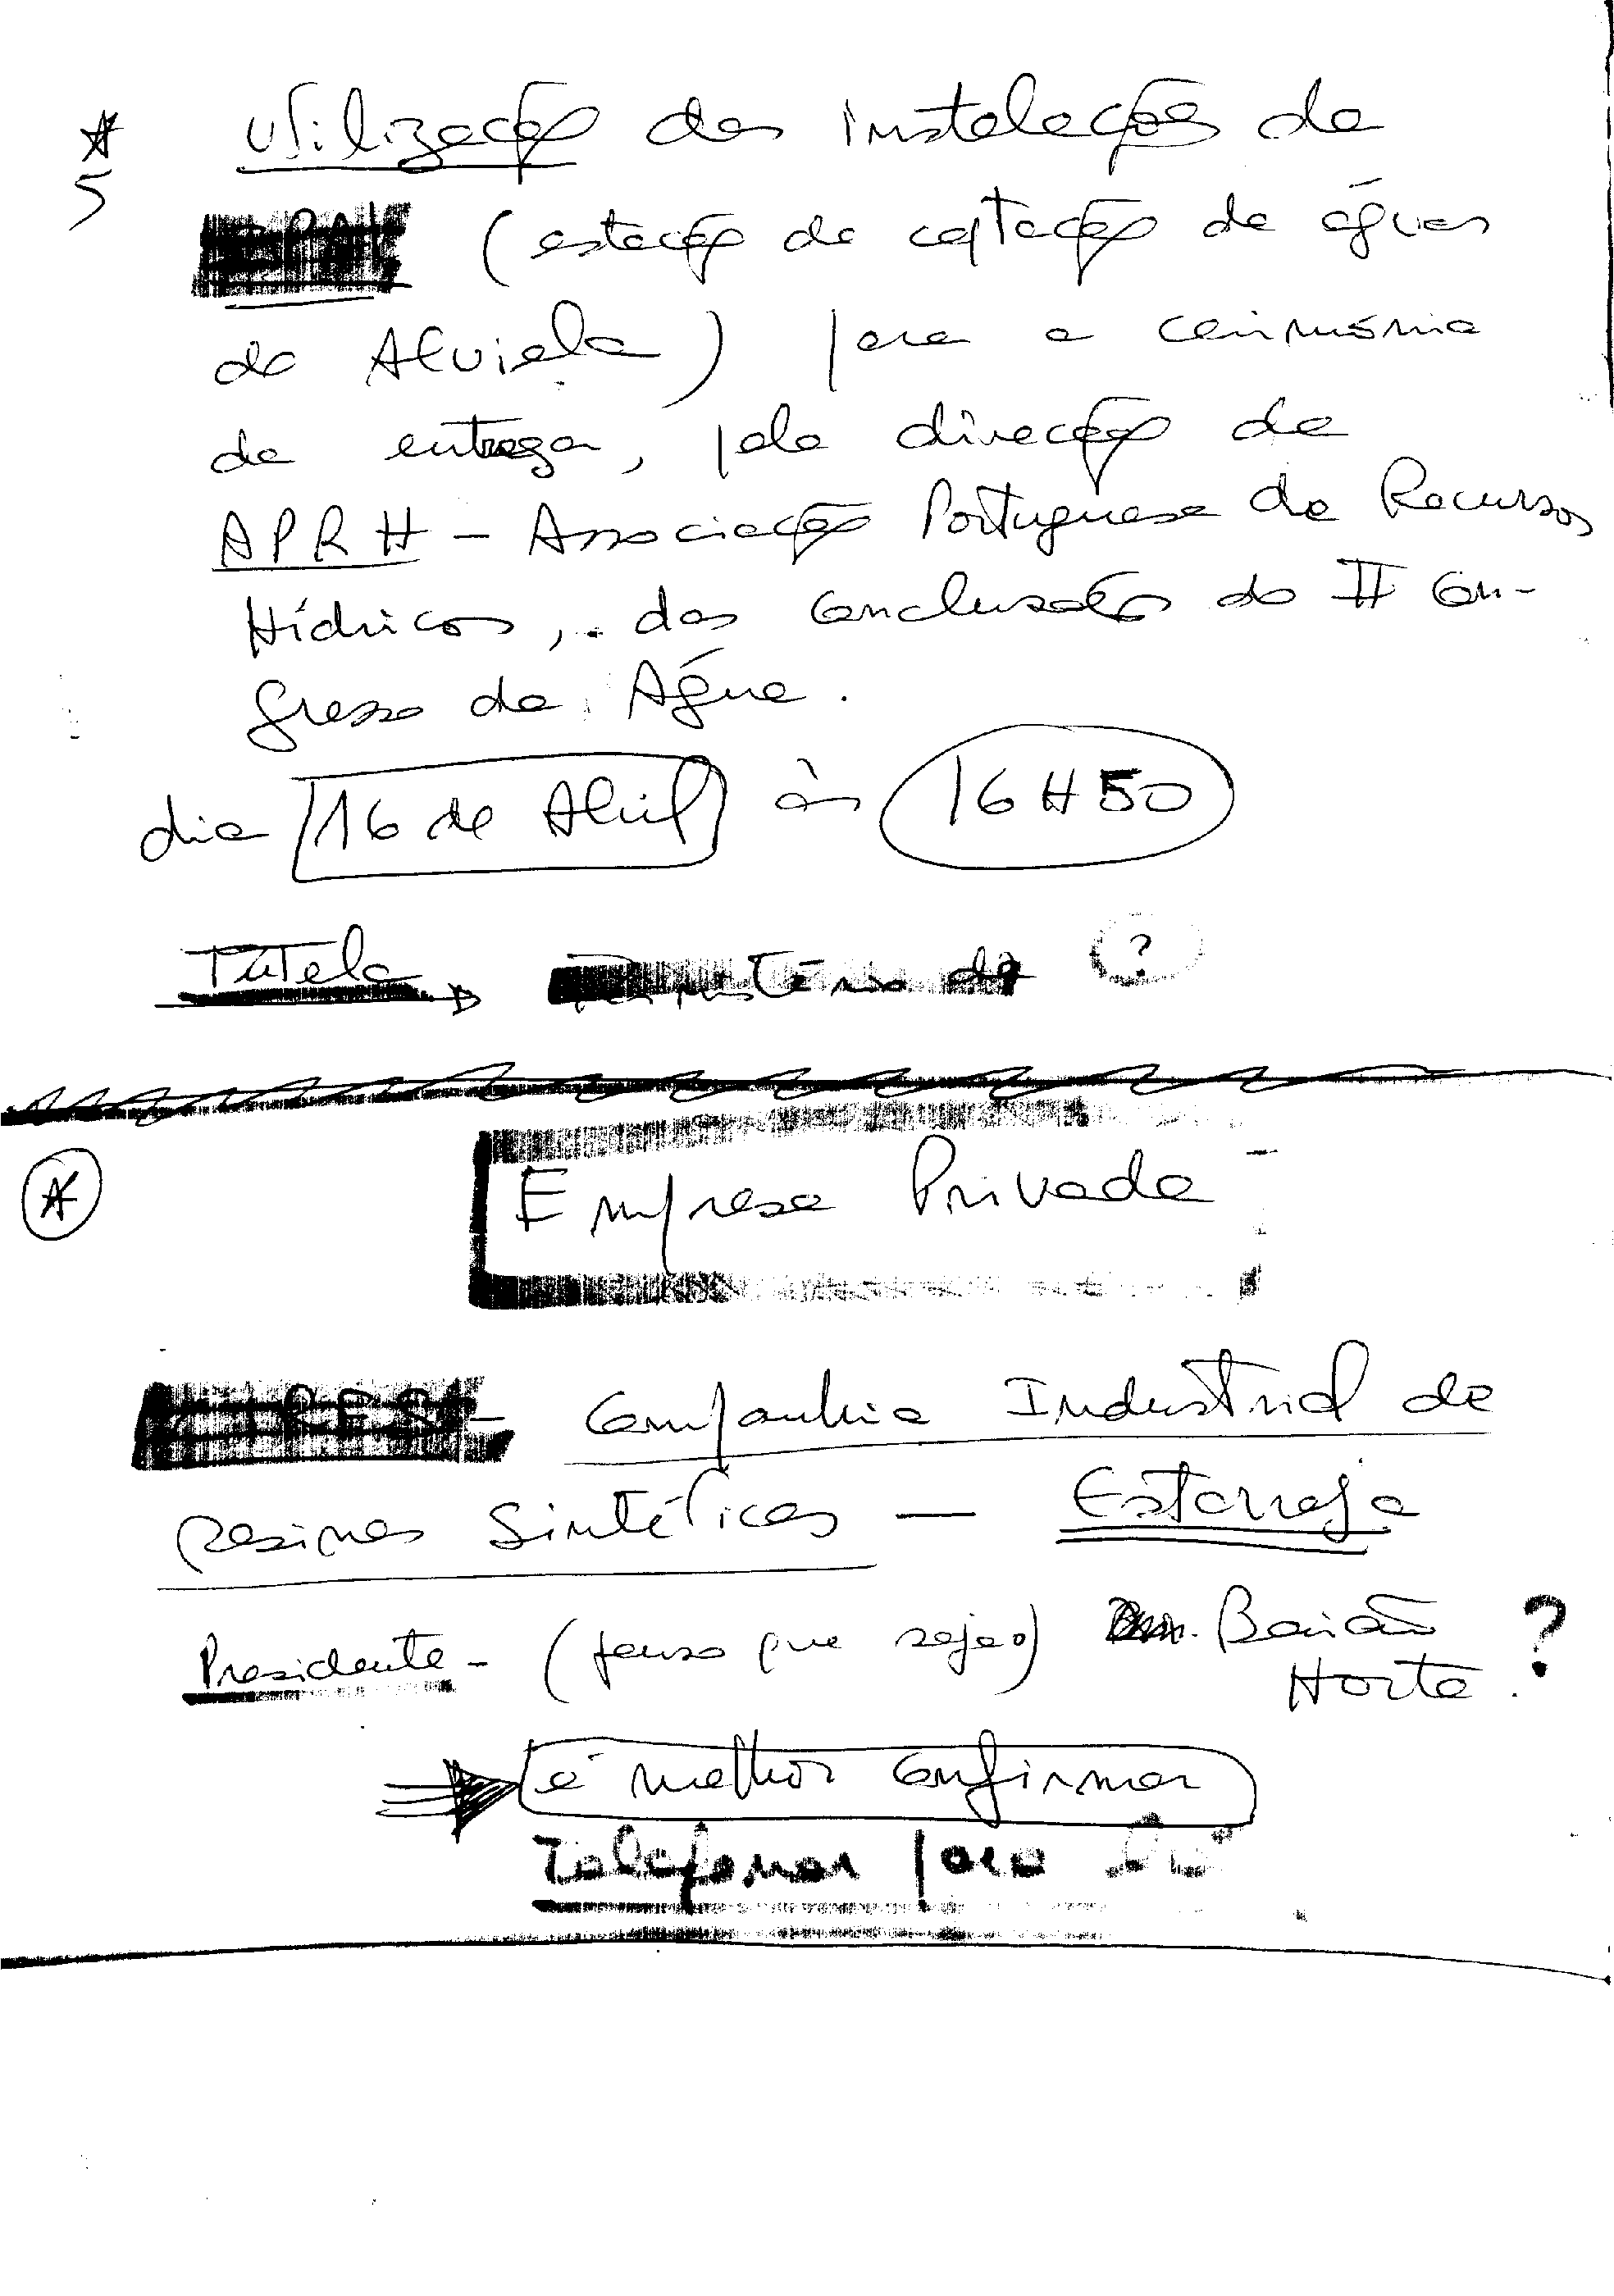 * utilização das instalações da
5
EPAL (estação de captação de águas
do Alviela) para a cerimónia
de entrega, pela direcção da
APRH - Associação Portuguesa de Recursos
Hídricos, das conclusões do II Con-
gresso da Água.
dia 16 de Abril às 16H50
Tutela → Ministério do ?
* Empresa Privada
CIRES - Companhia Industrial de
Resinas Sintéticas — Estarreja
Presidente - (penso que seja o) Baião
Horta ?
é melhor confirmar
Telefonar para